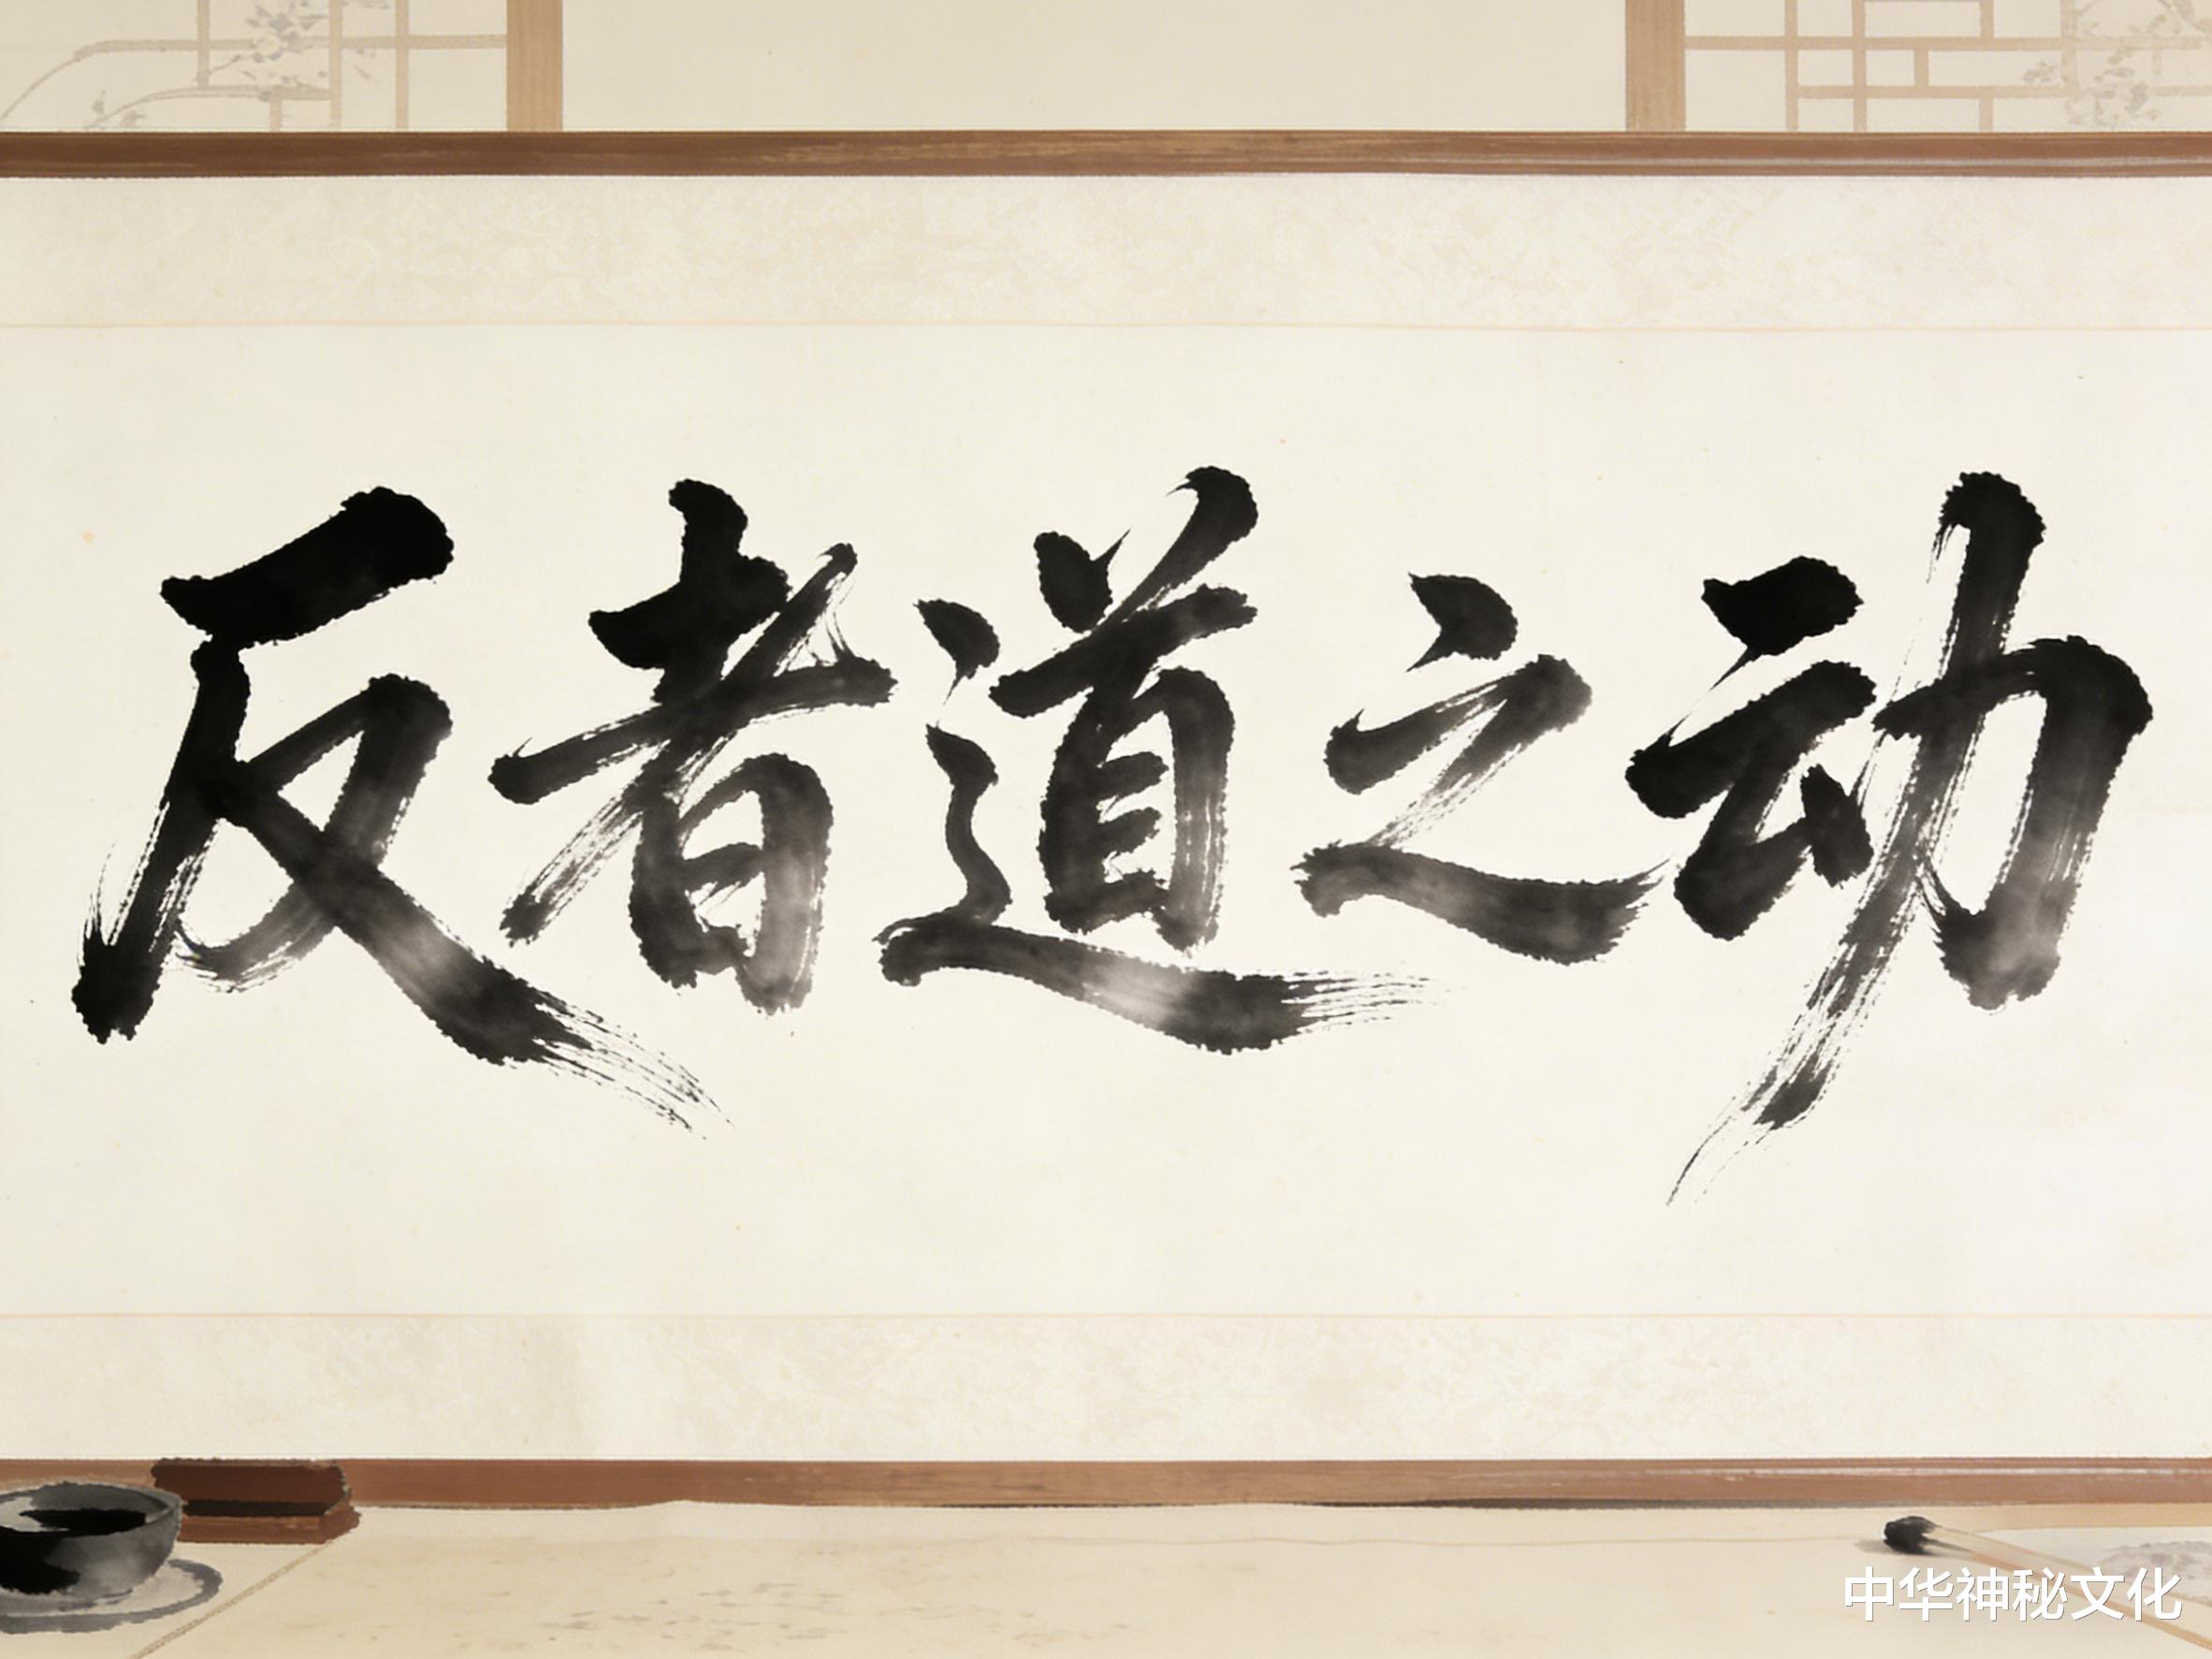 反者道之动
中华神秘文化